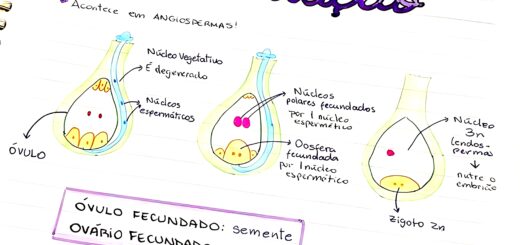 Acontece em ANGIOSPERMAS!
Núcleo Vegetativo
É degenerado
Núcleos
espermáticos
ÓVULO
Núcleos
polares fecundados
por 1 núcleo
espermático
Oosfera
fecundada
por 1 núcleo
espermático
Núcleo
3n
(endos-
perma)
nutre o
embrião
Zigoto 2n
ÓVULO FECUNDADO: semente
OVÁRIO FECUNDADO